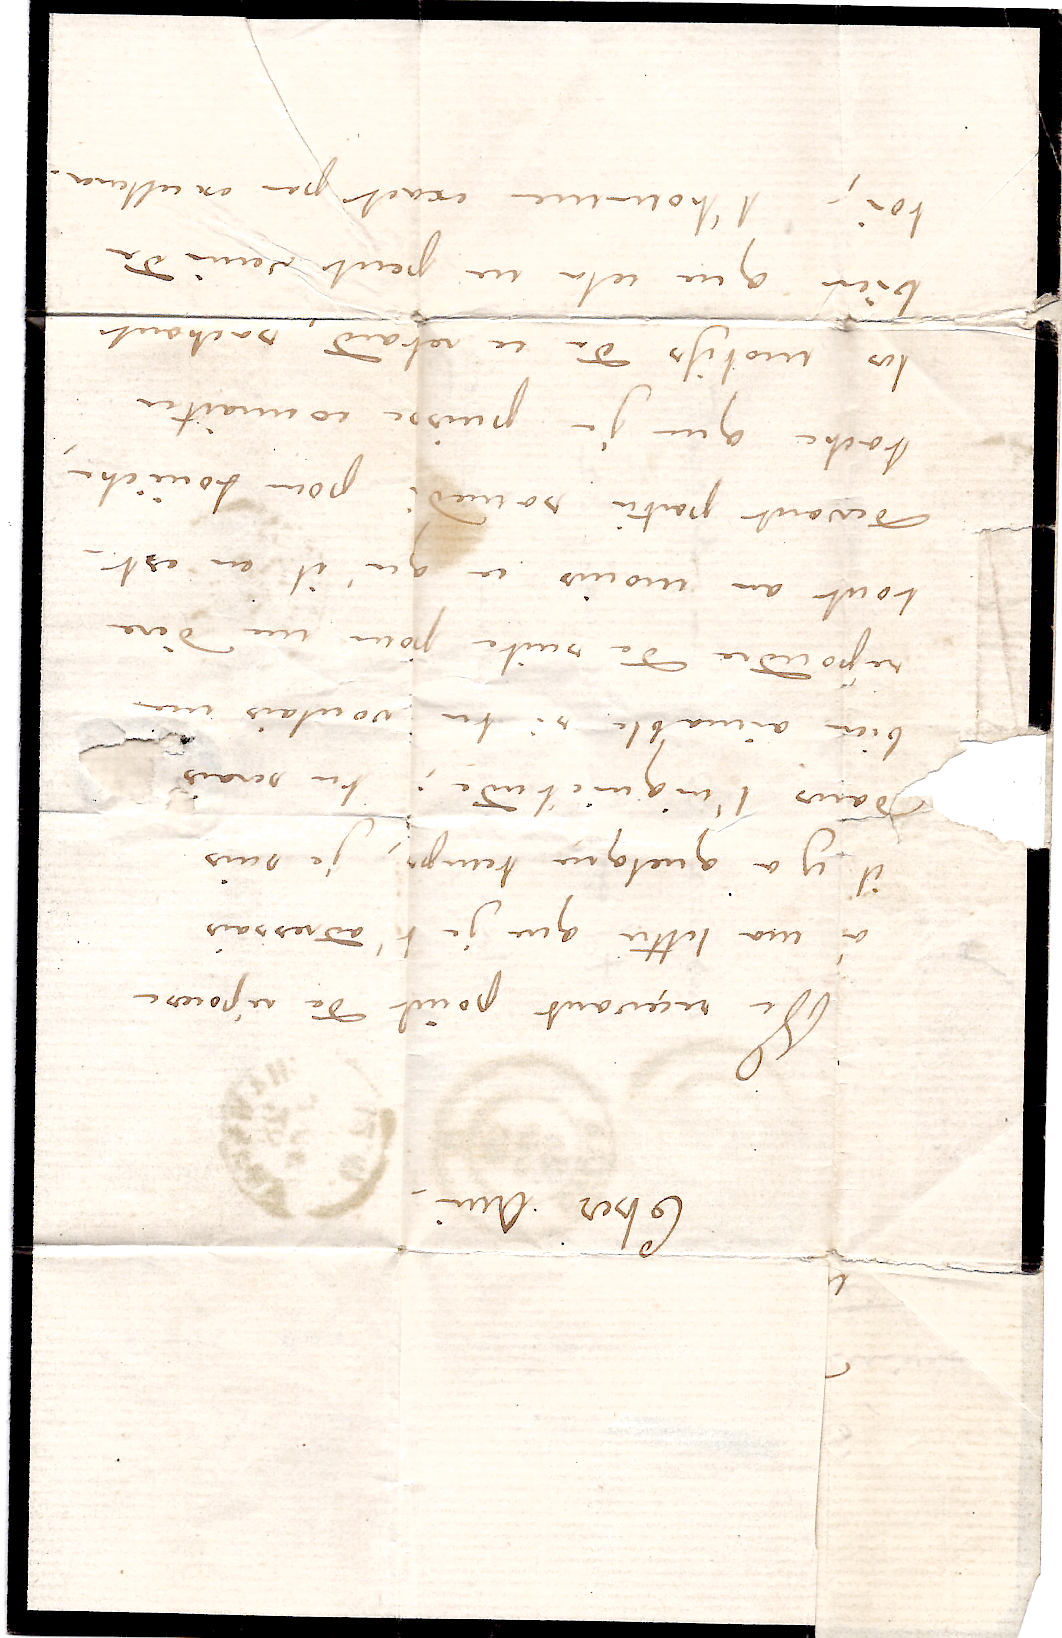 Cher Ami,
Ne recevant point de réponse
à ma lettre que je t'adressais
il y a quelque temps, je suis
dans l'inquiétude; tu serais
bien aimable si tu voulais me
répondre de suite pour me dire
tout au moins ce qu'il en est.
Devant partir samedi pour
tache que je puisse connaitre
les motifs de ce retard, sachant
bien que cela ne peut venir de
toi, l'homme exact par excellence.